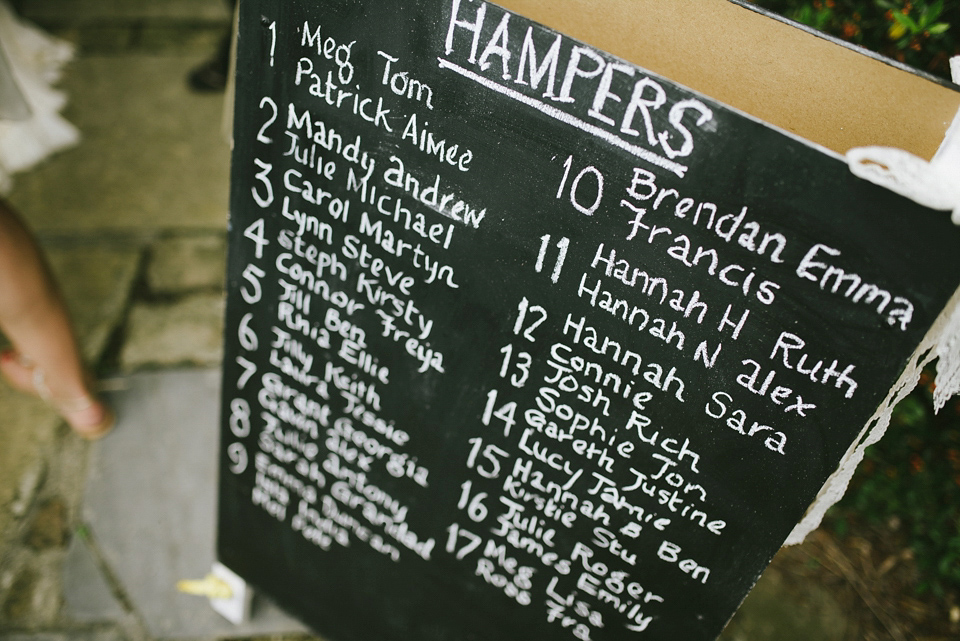 HAMPERS
1 Meg Tom
Patrick Aimee
2 Mandy andrew
Julie Michael
3 Carol Martyn
Lynn Steve
4 Steph Kirsty
Connor Freya
5 Jill Ben
Rhia Ellie
6 Jilly Keith
Laura Tessie
7 Grant Georgia
Gavin alex
8 Julie Antony
Sarah Grandad
9 Emma Duncan
10 Brendan Emma
Francis
11 Hannah H Ruth
Hannah N alex
12 Hannah Sara
Connie
13 Josh Rich
Sophie Jon
14 Gareth Justine
Lucy Jamie
15 Hannah B Ben
Kirstie Stu
16 Julie Roger
James Emily
17 Meg Lisa
Ross Fra